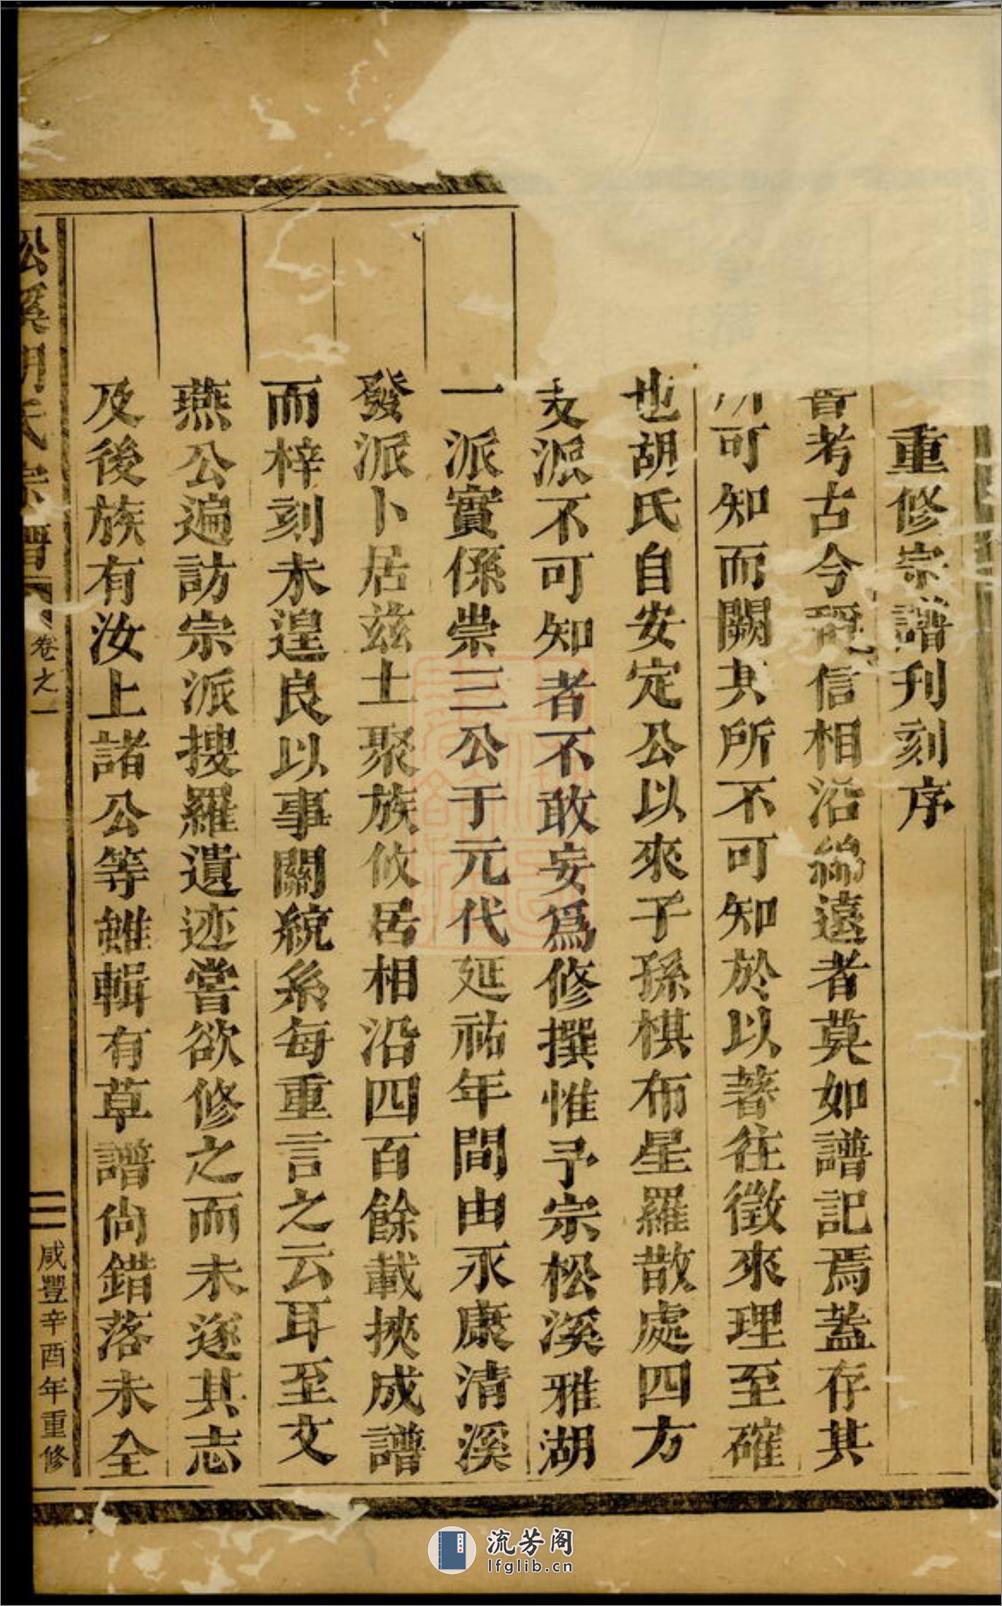 重修宗譜刊刻序
嘗考古今稱信相沿綿遠者莫如譜記焉蓋存其
所可知而闕其所不可知於以著往徵來理至確
也胡氏自安定公以來子孫棋布星羅散處四方
支派不可知者不敢妄爲修撰惟予宗松溪雅湖
一派實係崇三公于元代延祐年間由永康清溪
發派卜居兹土聚族攸居相沿四百餘載挾成譜
而梓刻未遑良以事關統系每重言之云耳至文
燕公遍訪宗派搜羅遺迹嘗欲修之而未遂其志
及後族有汝上諸公等雖輯有草譜尙錯落未全
松溪胡氏宗譜
卷之一
二
咸豐辛酉年重修
流芳阁
lfglib.cn